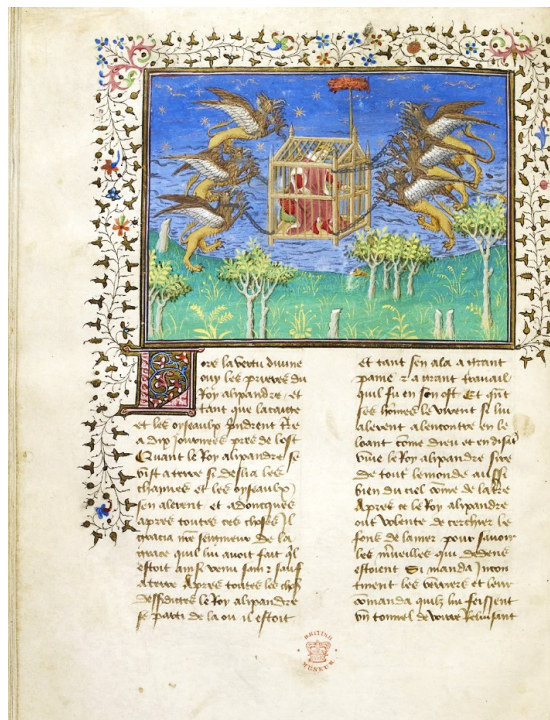 Lors la vertu divine
ouy les prieres du
Roy alixandre et
tant que la caitte
et les oyseaulx
a dix journees pres de lost
Quant le Roy alixandre se
vist a terre si deslia les
chaynes et les oyseaulx
sen alerent et adoncques
apres toutes ces choses Il
gracia nre seigneur de la
grace quil luy avoit fait ql
estoit ainsi venu sain z sauf
A terre Apres toutes les chos
dessusdictes le Roy alixandre
se parti de la ou il estoit
et tant sen ala a grant
paine z a grant travail
quil fu en son ost Et qnt
ses homes le virent si luy
alerent alencontre en le
loant come dieu et en disāt
vive le Roy alixandre sire
de tout le monde aussi
bien du ciel come de la tre
Apres ce le Roy alixandre
ont volente de cercher le
fons de la mer pour savoir
les merveilles qui dedens
estoient Si manda Incon
tinent les voirriers et leur
comanda quilz luy feissent
vn tonnel de voirre reluisant
BRITISH
MUSEUM